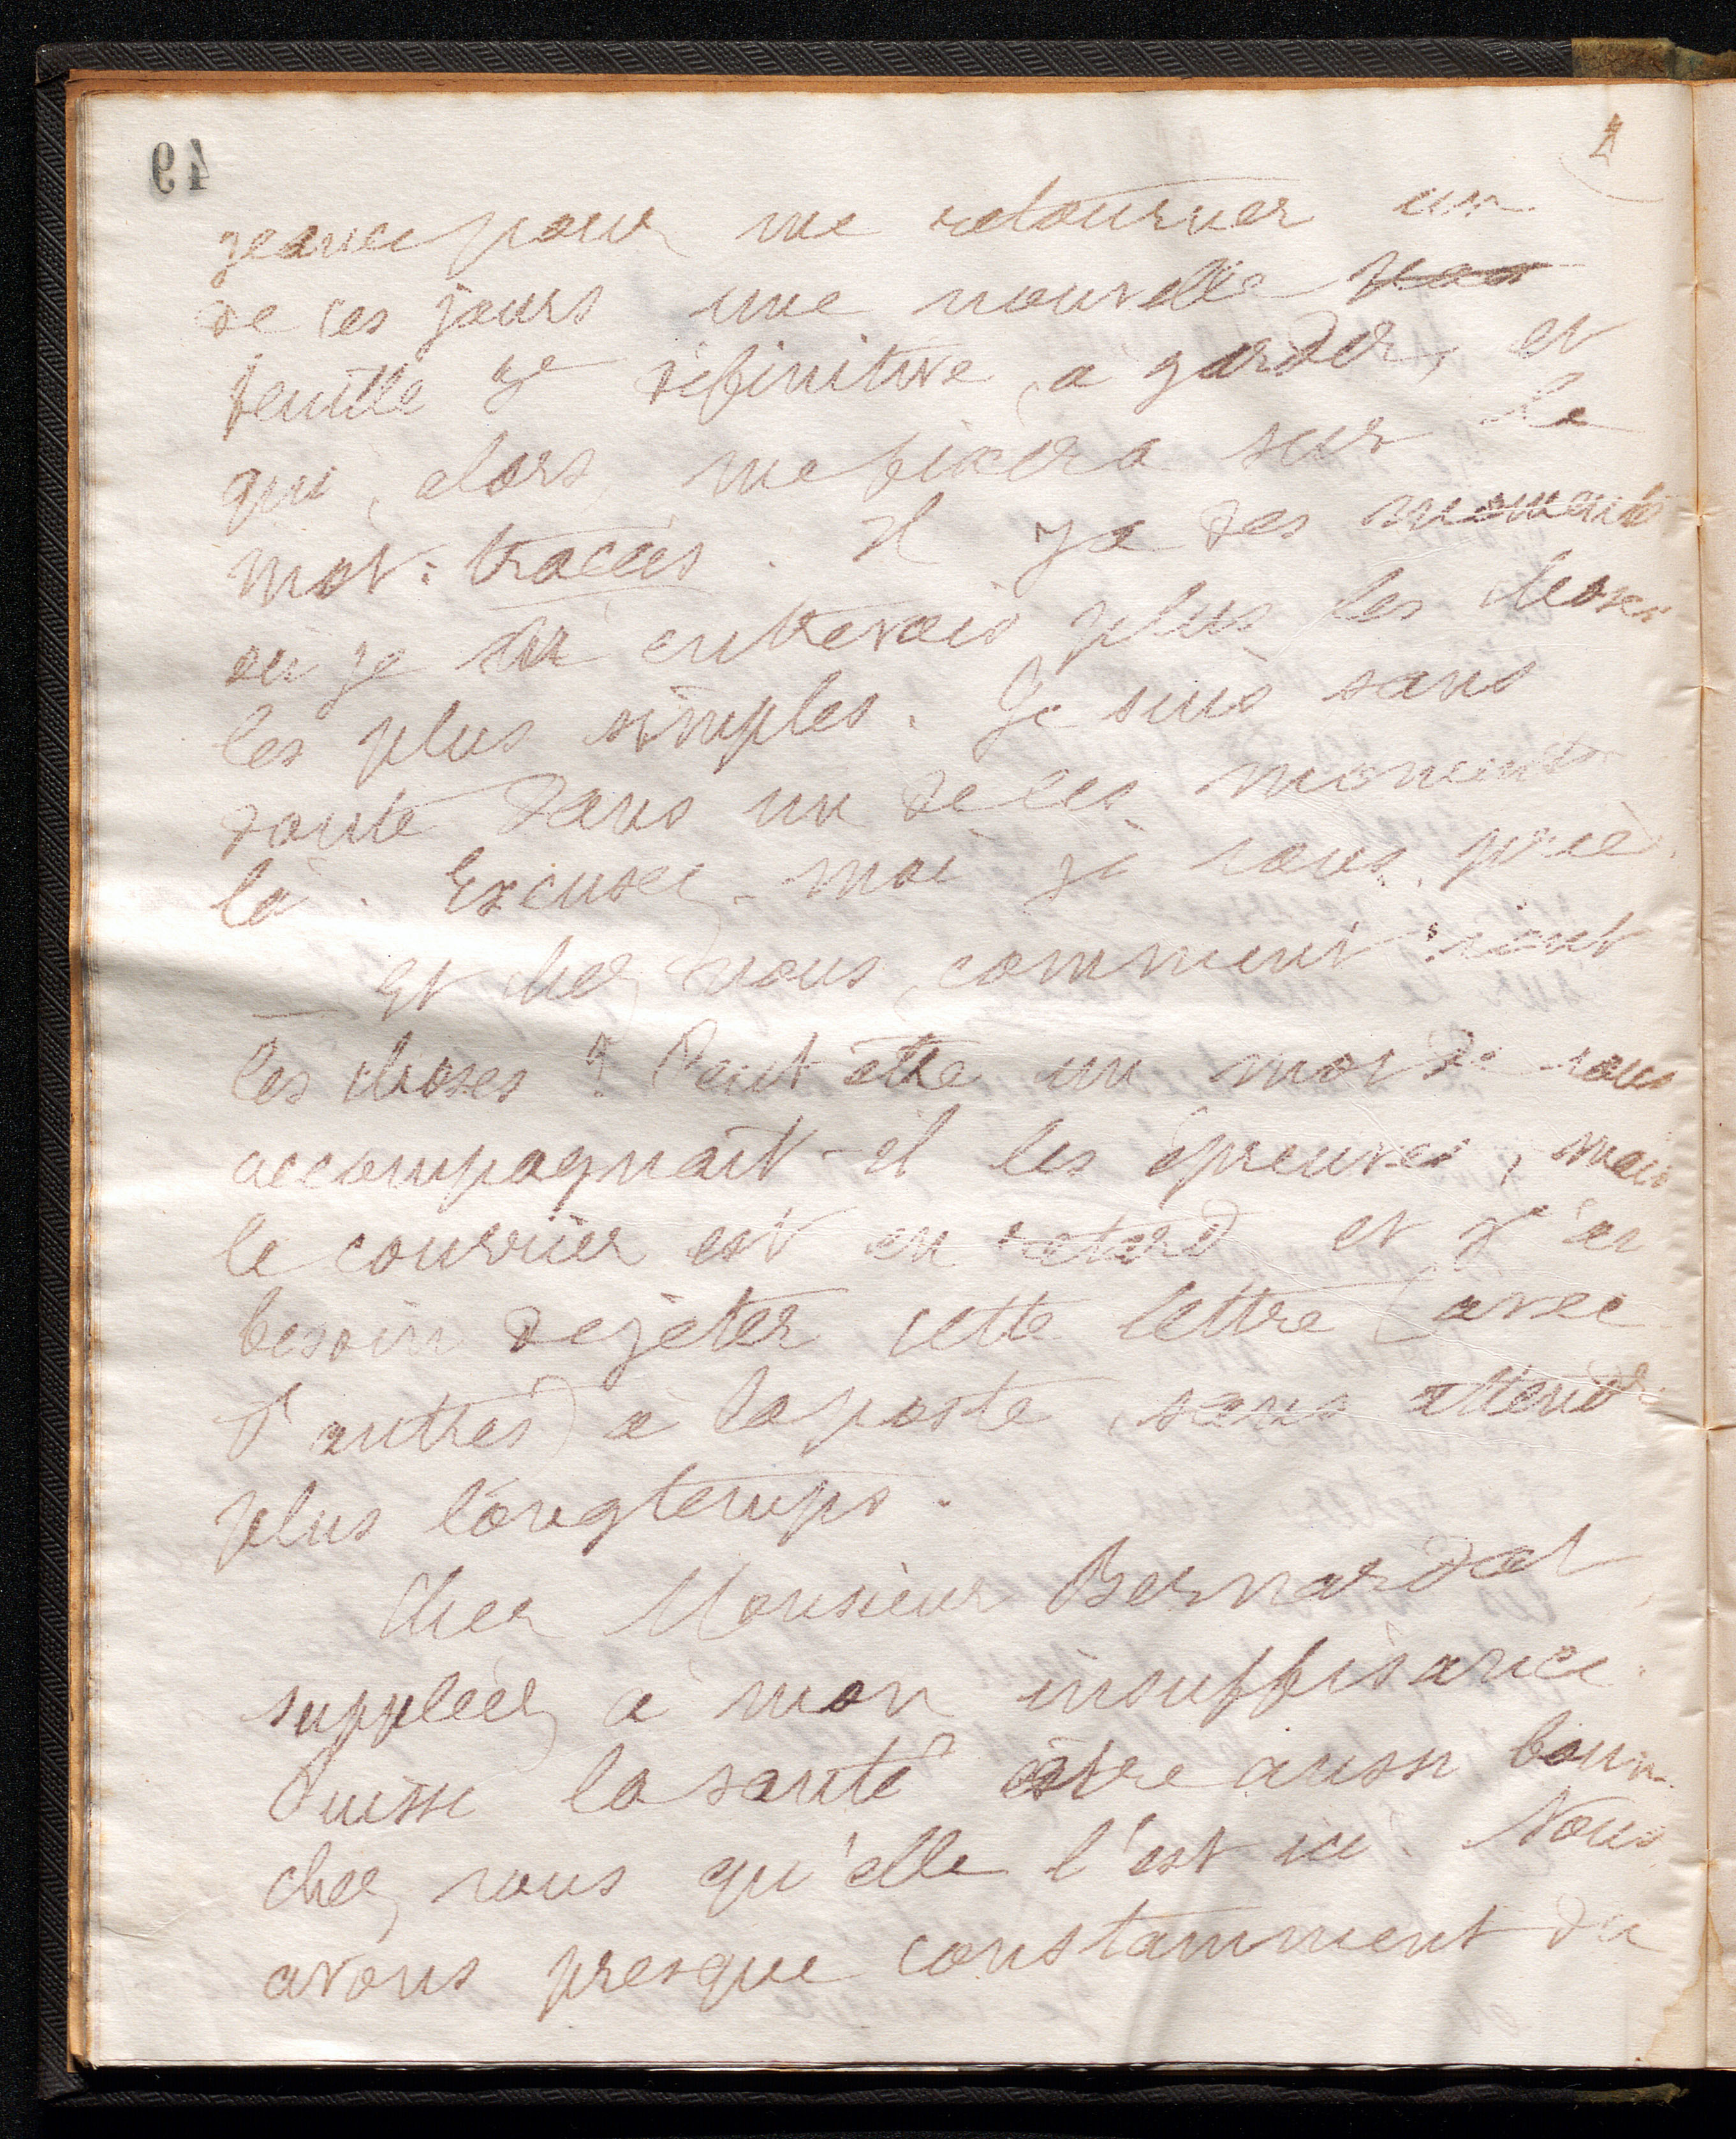 49
pour me retourner un
de ces jours une nouvelle
feuille 7e définitive, à garder, et
qui, alors, me fixera sur le
mot : tracées. Il y a des moments
où je n'entrevois plus les choses
les plus simples. Je suis sans
doute dans un de ces moments
là. Excusez-moi je vous prie.
_ Et chez vous, comment vont
les choses ? Peut être un mot de vous
accompagnait-il les épreuves, mais
le courrier est en retard et j'ai
besoin de jeter cette lettre (avec
d'autres) à la poste, sans attendre
plus longtemps.
Cher Monsieur Bernardot
suppléez à mon insuffisance.
Puisse la santé être aussi bonne
chez vous qu'elle l'est ici. Nous
avons presque constamment du